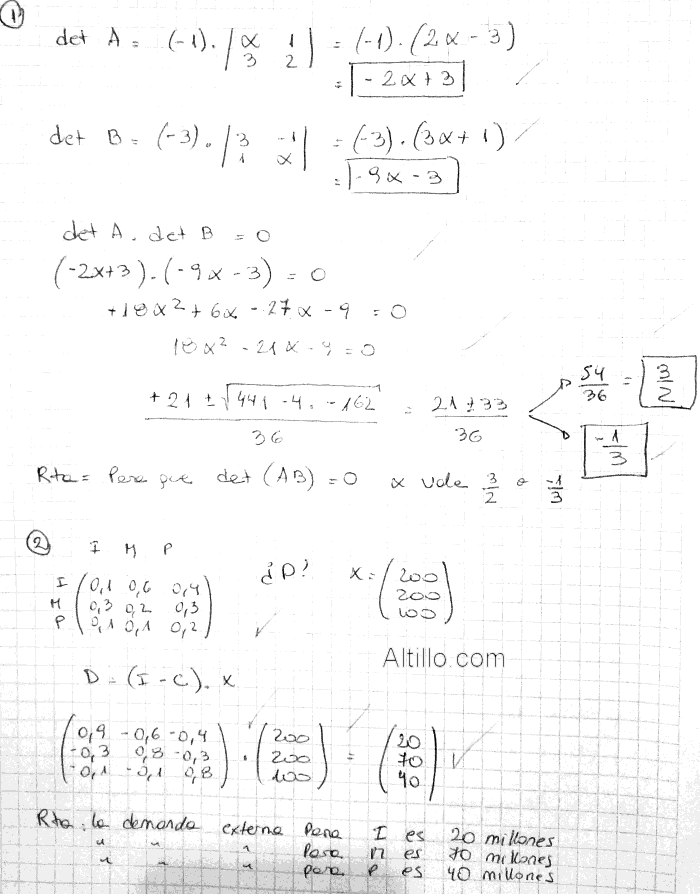 ①
det A = (-1) . | α 1 | = (-1) . (2α - 3)
| 3 2 | = -2α + 3
det B = (-3) . | 3 -1 | = (-3) . (3α + 1)
| 1 α | = -9α - 3
det A . det B = 0
(-2α+3) . (-9α - 3) = 0
+18α² + 6α - 27α - 9 = 0
18α² - 21α - 9 = 0
+21 ± √441 - 4 . -162 / 36 = 21 ± 33 / 36
54/36 = 3/2
-1/3
Rta = Para que det (AB) = 0 α vale 3/2 o -1/3
②
I M P
I ( 0,1 0,6 0,4 )
M ( 0,3 0,2 0,3 )
P ( 0,1 0,1 0,2 )
¿D? X = ( 200 200 100 )
Altillo.com
D = (I - C) . X
( 0,9 -0,6 -0,4 ) ( 200 ) ( 20 )
( -0,3 0,8 -0,3 ) . ( 200 ) = ( 70 )
( -0,1 -0,1 0,8 ) ( 100 ) ( 40 )
Rta: la demanda externa para I es 20 millones
" " " para M es 70 millones
" " " para P es 40 millones